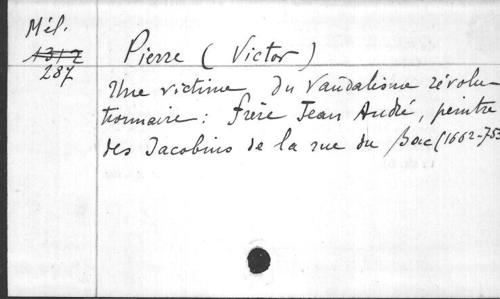 Mél.
1312
287
Pierre ( Victor )
Une victime du Vandalisme révolu-
tionnaire : frère Jean André, peintre
des Jacobins de la rue du Bac (1662-753